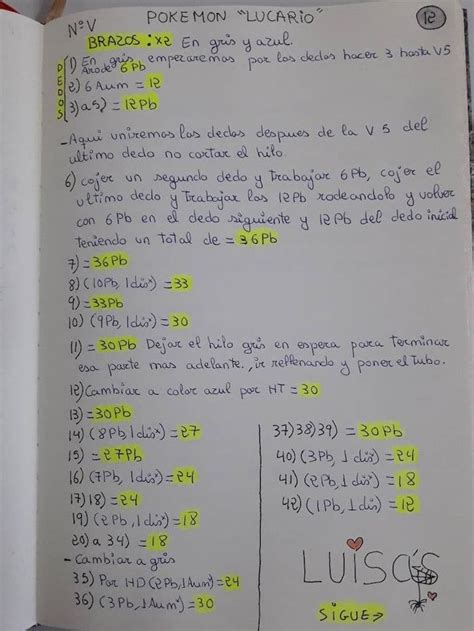 Nº V
POKEMON "LUCARIO"
12
BRAZOS: x2 En gris y azul.
DEDOS
1) En gris, empezaremos por los dedos hacer 3 hasta V5
Aro de 6Pb
2) 6 Aum = 12
3) a 5) = 12Pb
- Aqui uniremos los dedos despues de la V 5 del
ultimo dedo no cortar el hilo.
6) cojer un segundo dedo y trabajar 6Pb, cojer el
ultimo dedo y trabajar los 12Pb rodeandolo y volver
con 6Pb en el dedo siguiente y 12Pb del dedo inicial
teniendo un total de = 36Pb
7) = 36Pb
8) (10Pb, 1dis*) = 33
9) = 33Pb
10) (9Pb, 1dis*) = 30
11) = 30Pb Dejar el hilo gris en espera para terminar
esa parte mas adelante., ir rellenando y poner el tubo.
12) Cambiar a color azul por HT = 30
13) = 30Pb
14) (8Pb, 1dis*) = 27
15) = 27Pb
16) (7Pb, 1dis*) = 24
17) 18) = 24
19) (2Pb, 1dis*) = 18
20) a 34) = 18
- Cambiar a gris
35) Por HD (2Pb, 1Aum*) = 24
36) (3Pb, 1Aum*) = 30
37) 38) 39) = 30Pb
40) (3Pb, 1dis*) = 24
41) (2Pb, 1dis*) = 18
42) (1Pb, 1dis*) = 12
LUISA'S
SIGUE→